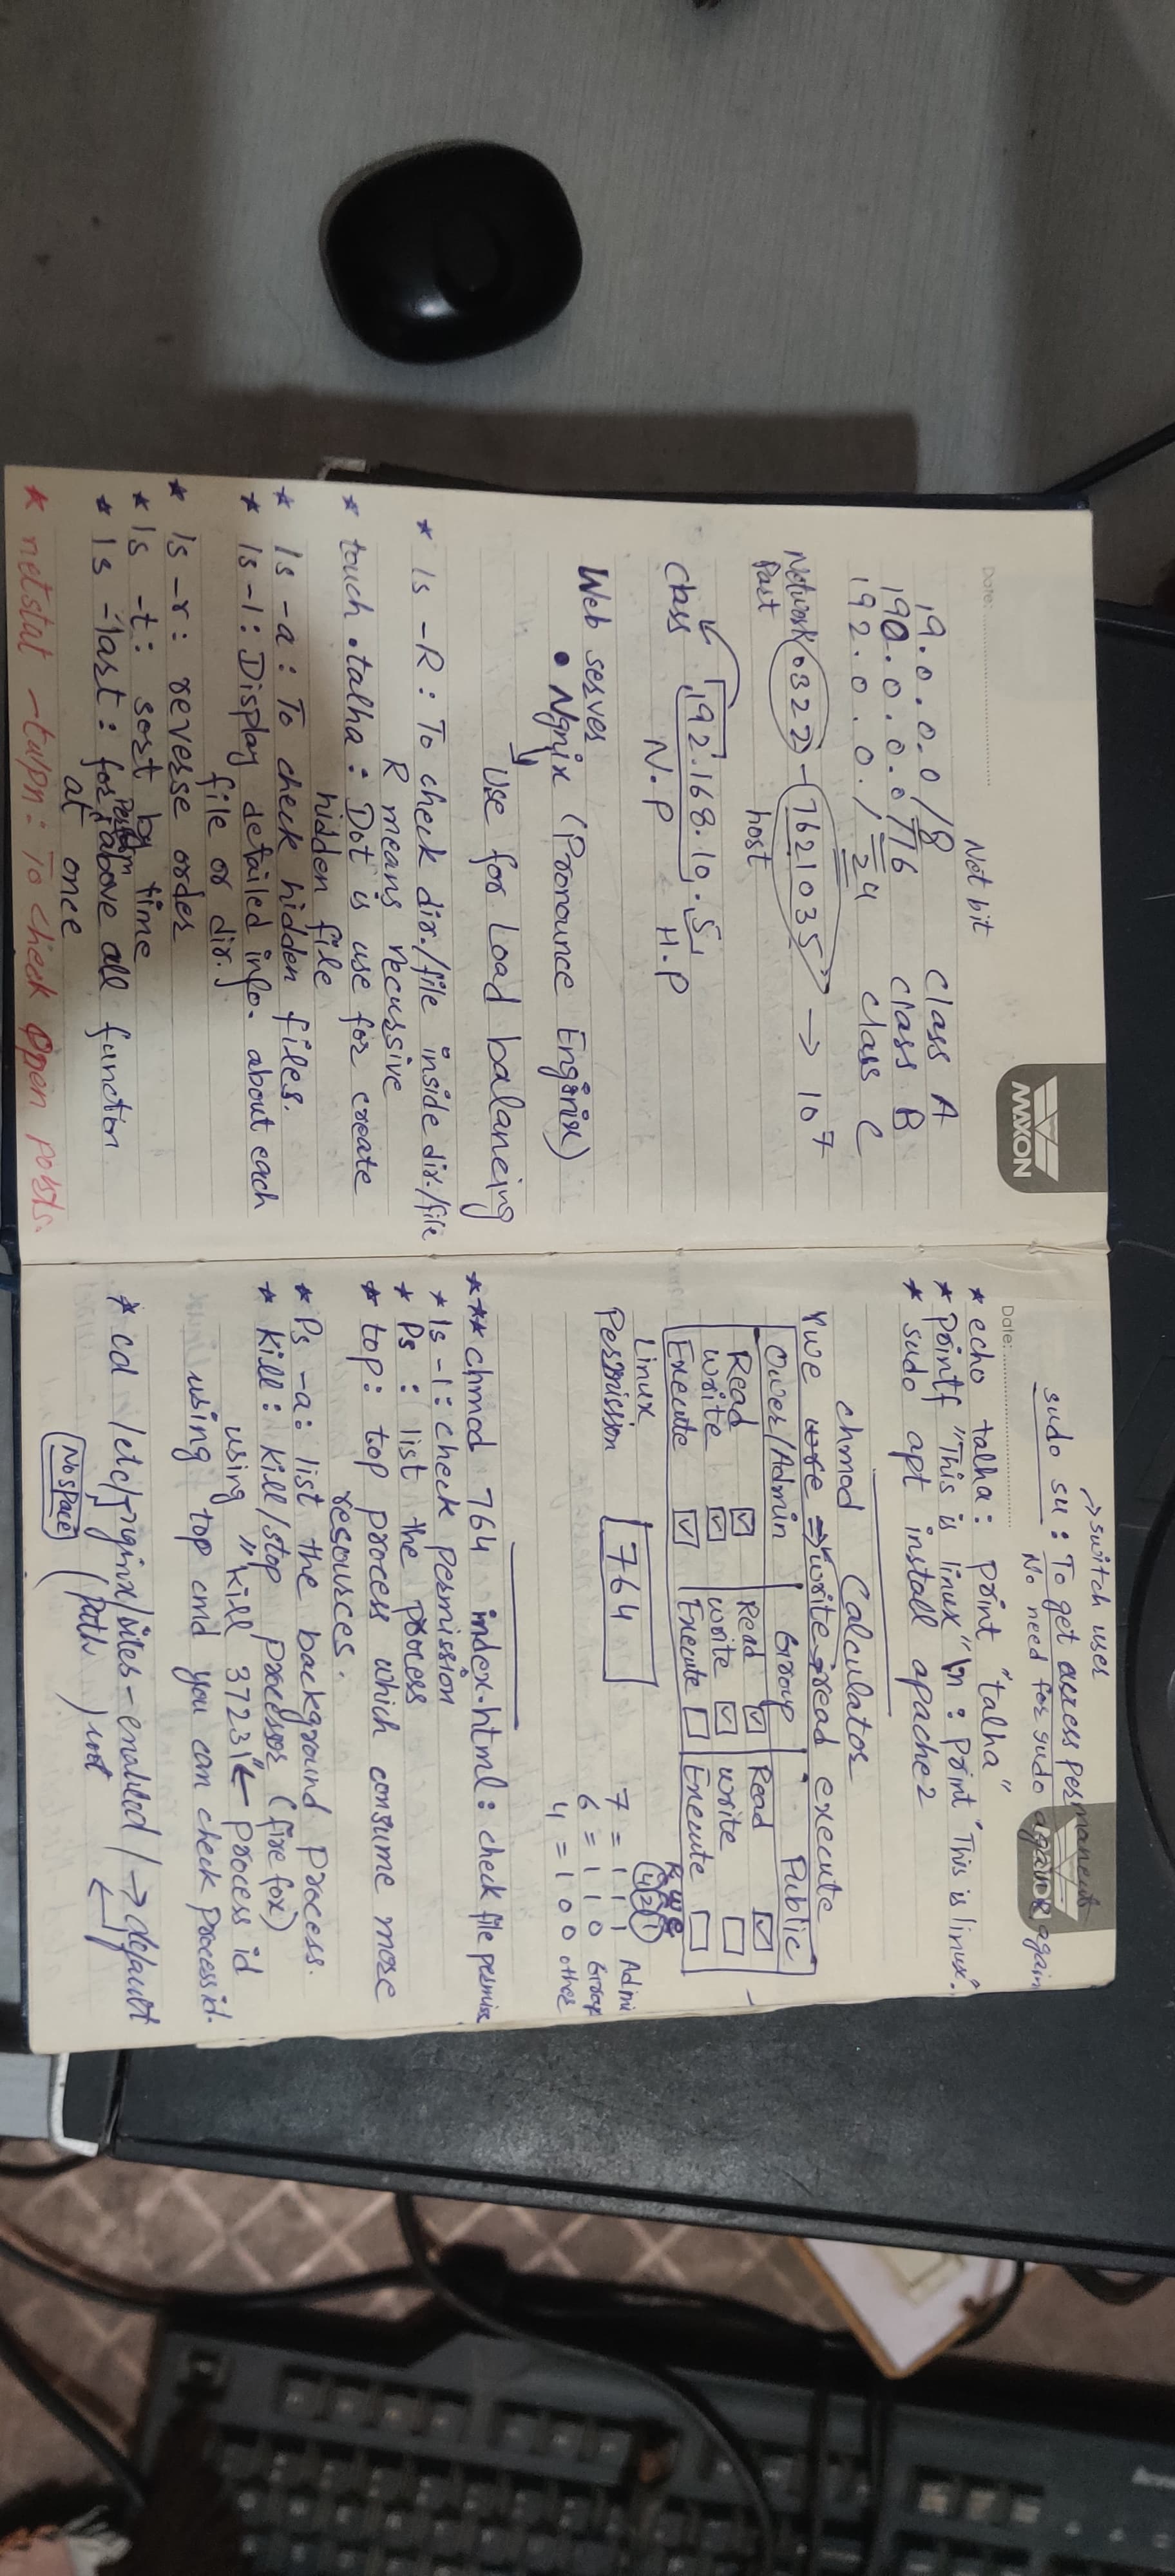 Date:
MAXON
Net bit
19.0.0.0/8 class A
190.0.0.0/16 class B
192.0.0.0./24 class C
Network 0322-7621035 → 10⁷
Part host
class 192.168.10.51
N.P H.P
Web server
• Ngnix (Pronounce Enginix)
Use for Load balancing
* ls -R : To check dir./file inside dir./file
R means recursive
* touch .talha : Dot is use for create
hidden file
* ls -a : To check hidden files.
* ls -l : Display detailed info. about each
file or dir.
* ls -r : reverse order
* ls -t : sort by time
* ls -last : for perform above all function
at once
* netstat -tulpn : To check open ports.
→ switch user
sudo su : To get access permanent
Date: No need for sudo again & again
* echo talha : print "talha"
* printf "This is linux" \n : print "This is linux".
* sudo apt install apache2
chmod Calculator
rwe ⇒ write read execute
Ower/Admin Group Public
Read Read Read
write write write
Execute Execute Execute
Linux
Permission 764
R w e
4 2 1 Admi
7 = 1 1 1
6 = 1 1 0 Group
4 = 1 0 0 other
*** chmod 764 index.html : check file permiss
* ls -l : check permission
* Ps : list the process
* top : top process which consume more
resources.
* Ps -a : list the background process.
* kill : kill/stop processor (fire fox)
using "kill 3723" ← process id
using top cmd you can check process id.
* cd /etc/nginx/sites-enabled / → default
No space (path)